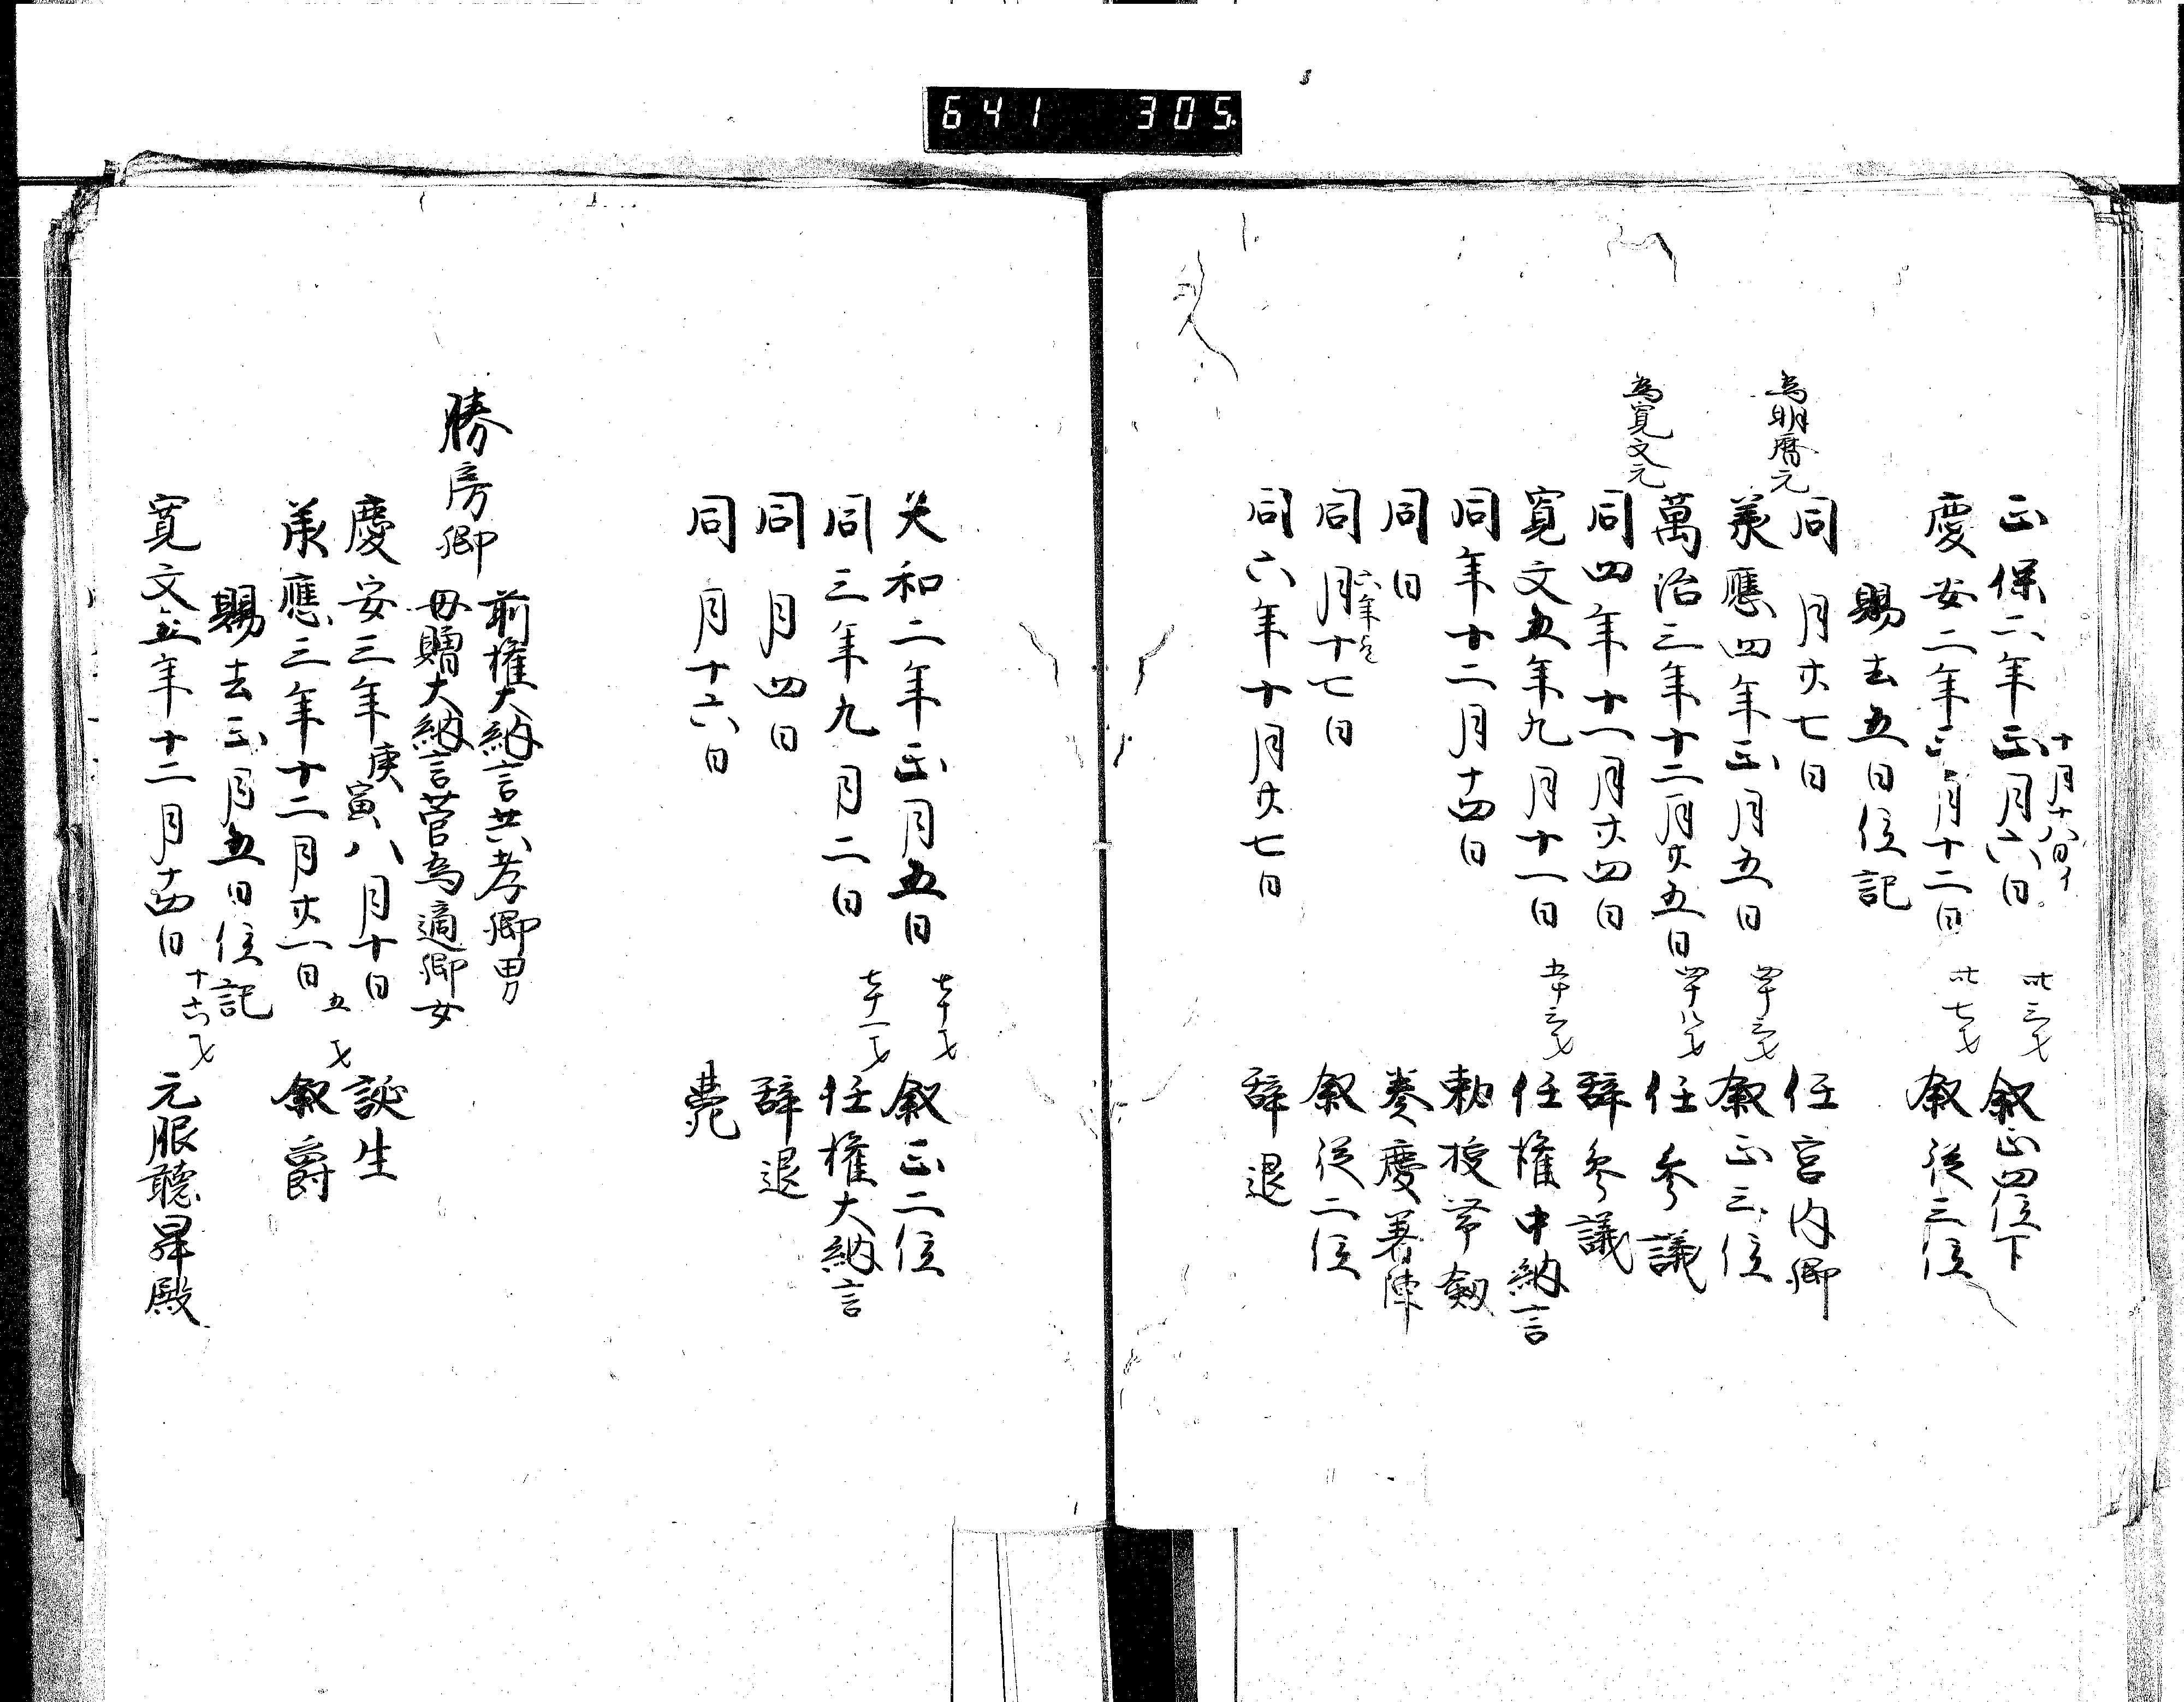 641 305
十月十八日イ
正保二年正月六日 卅三才 叙正四位下
慶安二年正月十二日 卅七才 叙従三位
賜去五日位記
同 月廿七日 任宮内卿
為明暦元
羕應四年正月五日 四十三才 叙正三位
萬治三年十二月廿五日 四十八才 任参議
為寛文元
同四年十一月廿四日 辞参議
寛文五年九月十一日 五十三才 任権中納言
同年十二月十四日 勅授帯劔
同日 奏慶著陣
同 月十七日 叙従二位
同六年十月廿七日 辞退
天和二年正月五日 七十才 叙正二位
同三年九月二日 七十一才 任權大納言
同 月四日 辞退
同 月十六日 薨
勝房卿
前權大納言共孝卿男
母贈大納言菅為適卿女
慶安三年庚寅八月十日 誕生
羕應三年十二月廿一日 五才 叙爵
賜去正月五日位記
寛文五年十二月十四日 十六才 元服聴昇殿